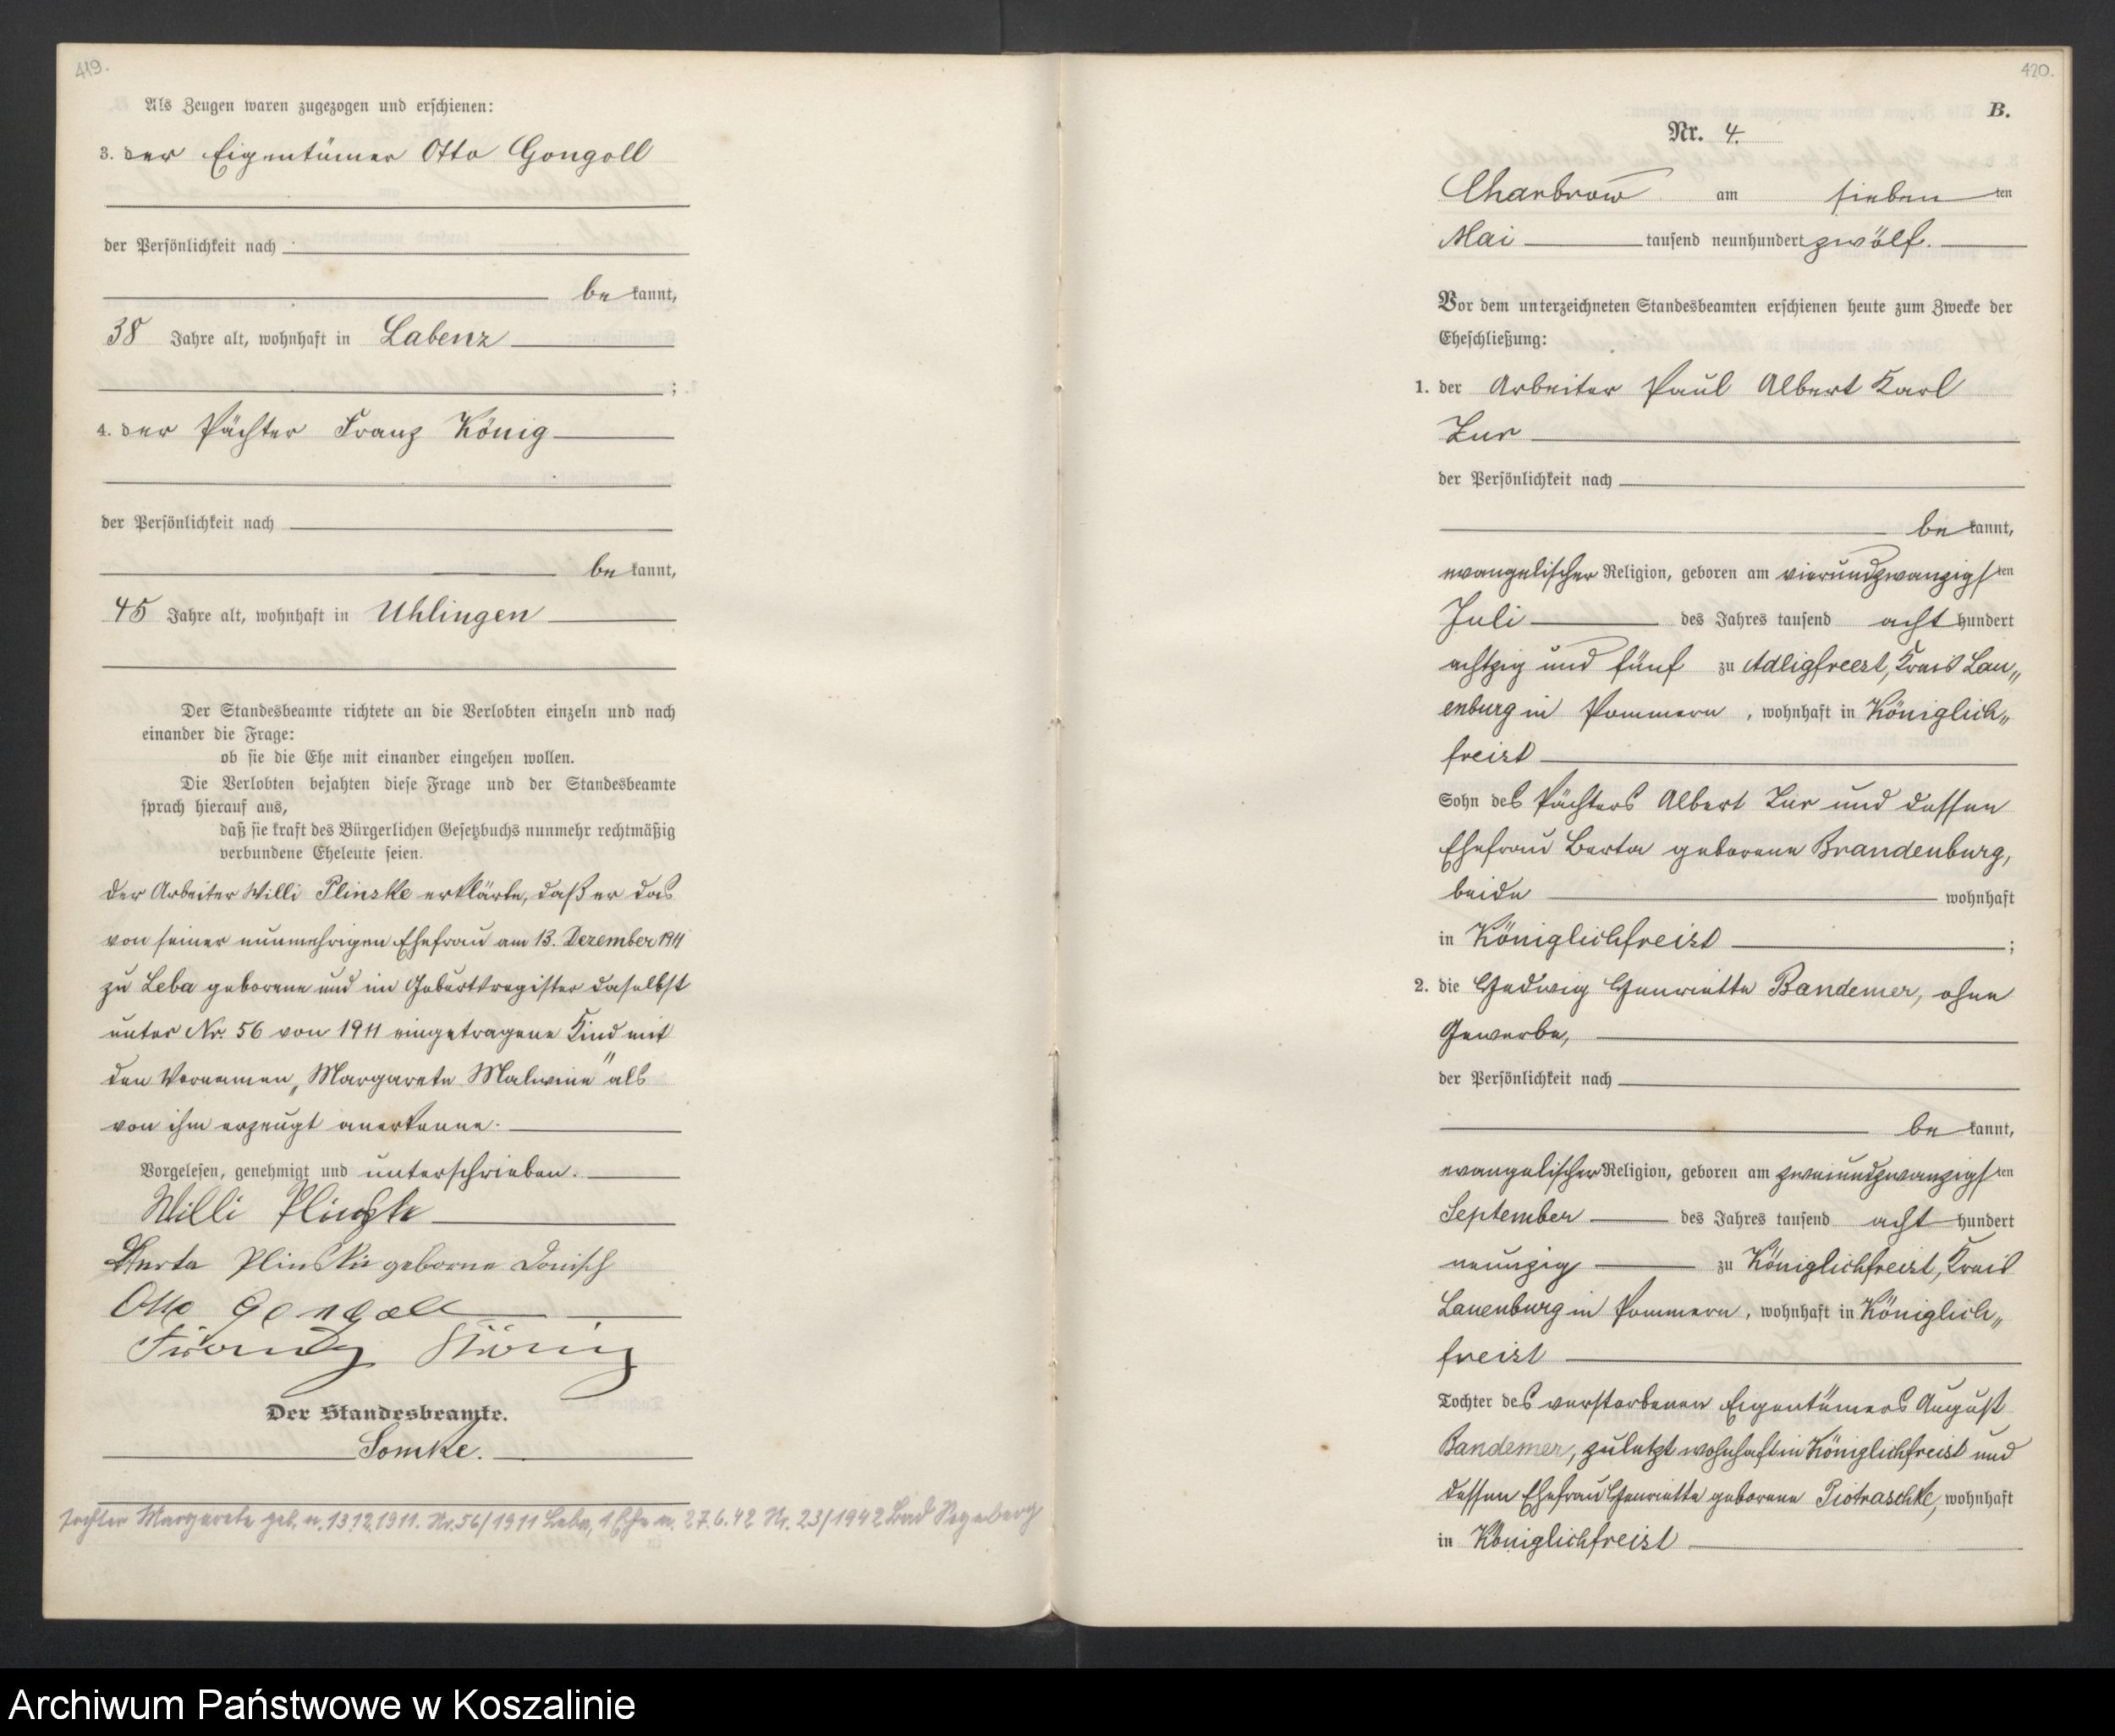 419.
Als Zeugen waren zugezogen und erschienen:
3. der Eigentümer Otto Gongoll
der Persönlichkeit nach
be kannt,
38 Jahre alt, wohnhaft in Labenz
;
4. der Pächter Franz König
der Persönlichkeit nach
be kannt,
45 Jahre alt, wohnhaft in Uhlingen
Der Standesbeamte richtete an die Verlobten einzeln und nach
einander die Frage:
ob sie die Ehe mit einander eingehen wollen.
Die Verlobten bejahten diese Frage und der Standesbeamte
sprach hierauf aus,
daß sie kraft des Bürgerlichen Gesetzbuchs nunmehr rechtmäßig
verbundene Eheleute seien.
Der Arbeiter Willi Plinske erklärte, daß er das
von seiner nunmehrigen Ehefrau am 13. Dezember 1911
zu Leba geborene und im Geburtsregister daselbst
unter Nr. 56 von 1911 eingetragene Kind mit
den Vornamen „Margarete Malwine" als
von ihm erzeugt anerkenne.
Vorgelesen, genehmigt und unterschrieben.
Willi Plinske
Herta Plinske geborne Donisch
Otto Gongoll
Franz König
Der Standesbeamte.
Somke.
Tochter Margarete geb. a. 13.12.1911. Nr. 56/1911 Leba, 1. Ehe a. 27.6.42 Nr. 23/1942 Bad Segeberg
420.
B.
Nr. 4.
Charbrow am sieben ten
Mai tausend neunhundert zwölf.
Vor dem unterzeichneten Standesbeamten erschienen heute zum Zwecke der
Eheschließung:
1. der Arbeiter Paul Albert Karl
Zur
der Persönlichkeit nach
be kannt,
evangelischer Religion, geboren am vierundzwanzigs ten
Juli des Jahres tausend acht hundert
achtzig und fünf zu Adligfreest, Kreis Lau„
enburg in Pommern, wohnhaft in Königlich„
freist
Sohn des Pächters Albert Zur und dessen
Ehefrau Berta geborene Brandenburg,
beide wohnhaft
in Königlichfreist ;
2. die Hedwig Henriette Bandemer, ohne
Gewerbe,
der Persönlichkeit nach
be kannt,
evangelischer Religion, geboren am zweiundzwanzigs ten
September des Jahres tausend acht hundert
neunzig zu Königlichfreist, Kreis
Lauenburg in Pommern, wohnhaft in Königlich„
freist
Tochter des verstorbenen Eigentümers August
Bandemer, zuletzt wohnhaft in Königlichfreist und
dessen Ehefrau Henriette geborene Piotraschke, wohnhaft
in Königlichfreist
Archiwum Państwowe w Koszalinie